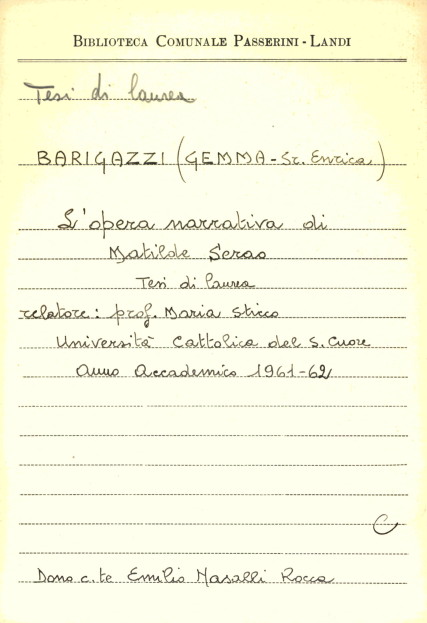 BIBLIOTECA COMUNALE PASSERINI - LANDI
Tesi di laurea
BARIGAZZI (GEMMA - Sr. Enrica)
L'opera narrativa di
Matilde Serao
Tesi di laurea
relatore: prof. Maria Sticco
Università Cattolica del S. Cuore
Anno Accademico 1961-62
C
Dono c.te Emilio Nasalli Rocca